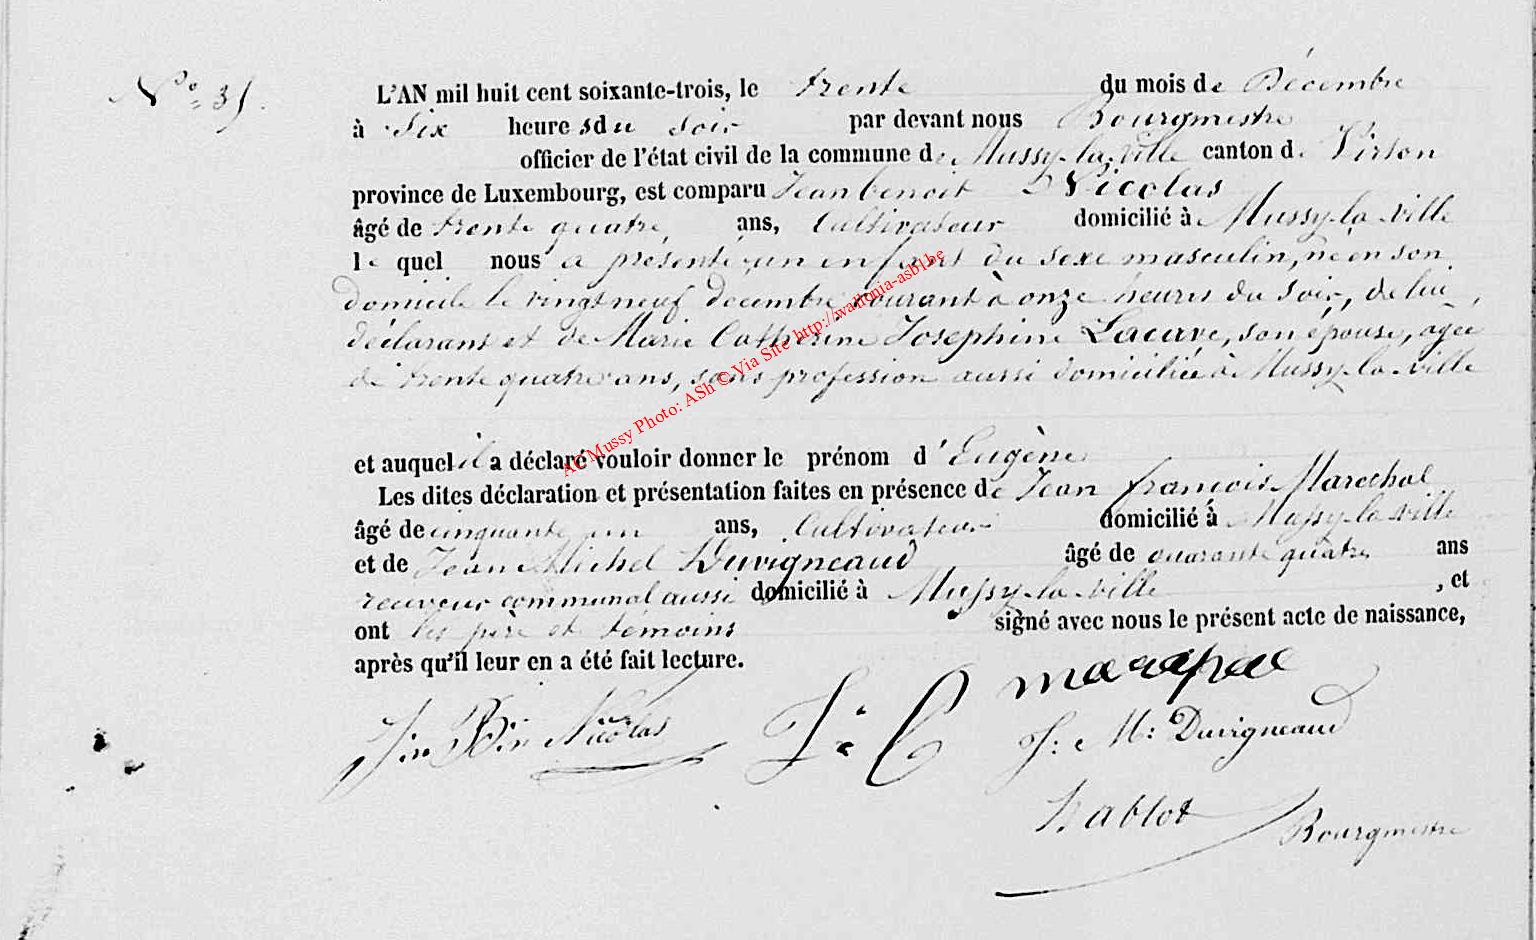 N° 35.
L'AN mil huit cent soixante-trois, le trente du mois de Décembre
à Six heures du soir par devant nous Bourgmestre
officier de l'état civil de la commune de Mussy-la-Ville canton de Virton
province de Luxembourg, est comparu Jean benoit Nicolas
âgé de trente quatre, ans, Cultivateur domicilié à Mussy-la-Ville
le quel nous a présenté un enfant du sexe masculin, né en son
domicile le vingt neuf décembre courant à onze heures du soir, de lui,
déclarant et de Marie Catherine Josephine Lacave, son épouse, agée
de trente quatre ans, sans profession aussi domiciliée à Mussy-la-Ville
et auquel il a déclaré vouloir donner le prénom d'Eugène
Les dites déclaration et présentation faites en présence de Jean françois Marechal
âgé de cinquante un ans, Cultivateur domicilié à Mussy-la-Ville
et de Jean Michel Duvigneaud âgé de quarante quatre ans
receveur communal aussi domicilié à Mussy-la-Ville, et
ont les père et témoins signé avec nous le présent acte de naissance,
après qu'il leur en a été fait lecture.
Jn Bn Nicolas J: C marechal
J: M: Duvigneaud
Hablot Bourgmestre
AC Mussy Photo: ASh © Via Site http://wallonia-asbl.be